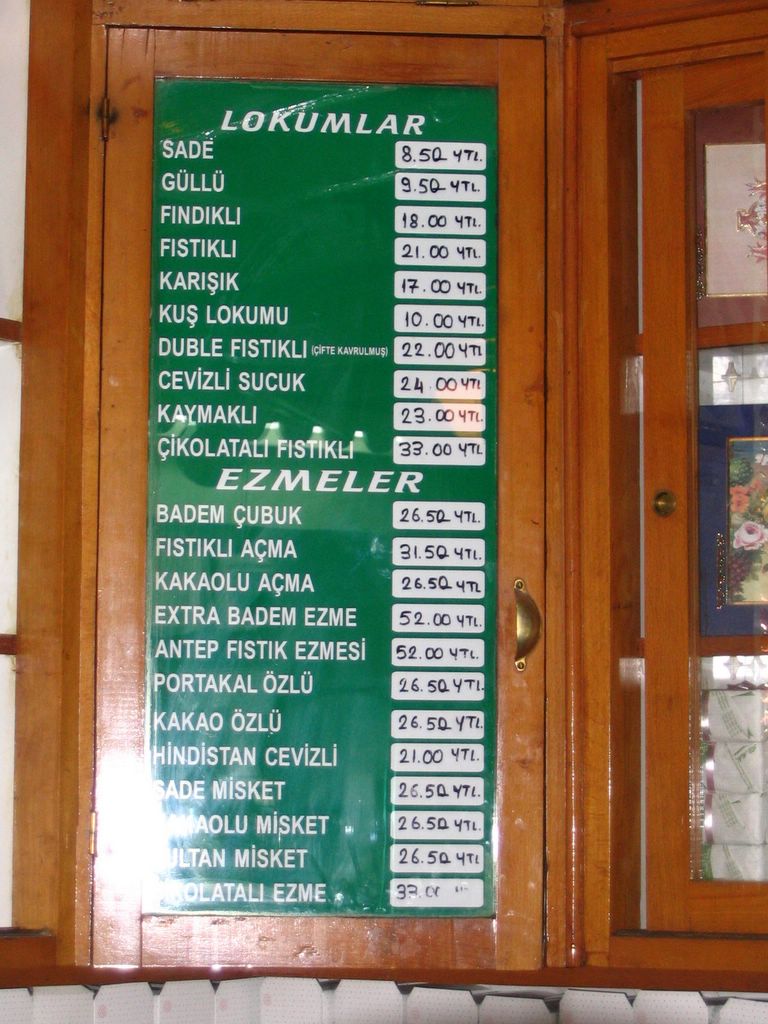 LOKUMLAR
SADE 8.50 YTL.
GÜLLÜ 9.50 YTL.
FINDIKLI 18.00 YTL.
FISTIKLI 21.00 YTL.
KARIŞIK 17.00 YTL.
KUŞ LOKUMU 10.00 YTL.
DUBLE FISTIKLI (ÇİFTE KAVRULMUŞ) 22.00 YTL.
CEVİZLİ SUCUK 24.00 YTL.
KAYMAKLI 23.00 YTL.
ÇİKOLATALI FISTIKLI 33.00 YTL
EZMELER
BADEM ÇUBUK 26.50 YTL.
FISTIKLI AÇMA 31.50 YTL.
KAKAOLU AÇMA 26.50 YTL
EXTRA BADEM EZME 52.00 YTL.
ANTEP FISTIK EZMESİ 52.00 YTL.
PORTAKAL ÖZLÜ 26.50 YTL.
KAKAO ÖZLÜ 26.50 YTL.
HİNDİSTAN CEVİZLİ 21.00 YTL.
SADE MİSKET 26.50 YTL.
MİSKET 26.50 YTL.
SULTAN MİSKET 26.50 YTL
EZME 33.00